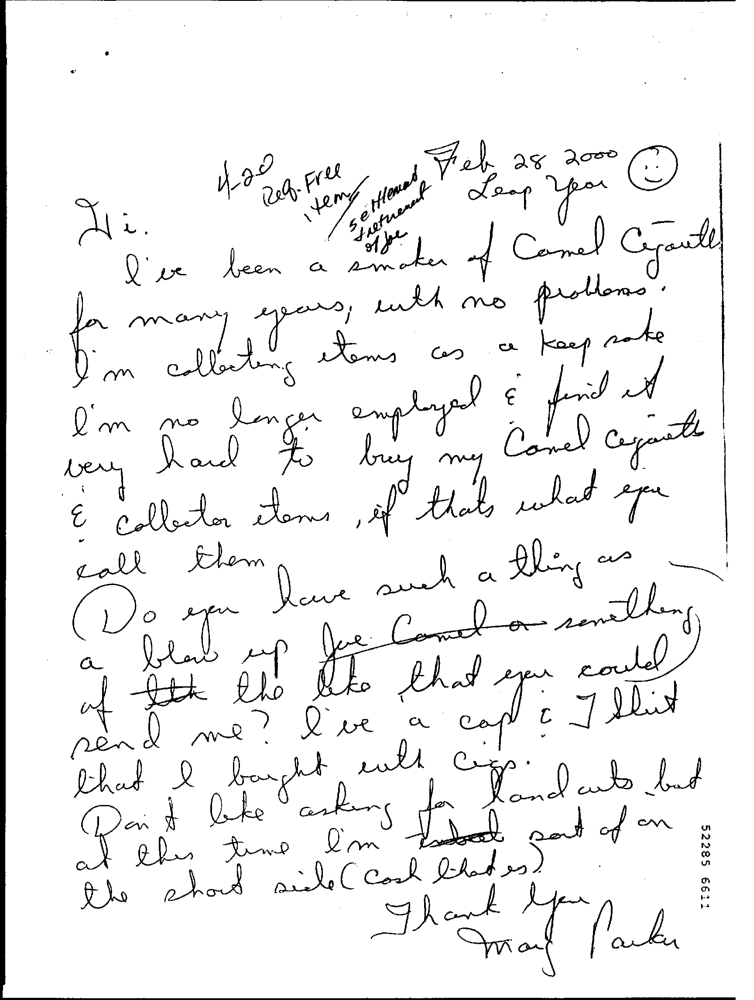 4-20
Req. Free
item/
settlement
& retirement
of Joe
Feb 28 2000
Leap Year
Hi.
I've been a smoker of Camel Cigarett
for many years, with no problems.
I'm collecting items as a keep sake
I'm no longer employed & find it
very hard to buy my Camel Cigaretts
& collector items, if thats what you
call them
Do you have such a thing as
a blow up Joe Camel or something
of the like that you could
send me? I've a cap & T Shirt
that I bought with Cigs.
Don't like asking for handouts but
at this time I'm sort of on
the short side (cash that is).
Thank You
Mary Parker
52285 6611